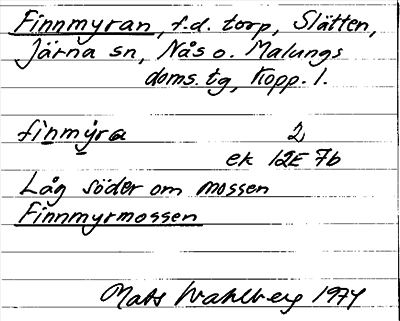 Finnmyran, f.d. torp, Slätten,
Järna sn, Nås o. Malungs
doms.tg, Kopp. l.
finmyra 2
ek 12E 7b
Låg söder om mossen
Finnmyrmossen
Mats Wahlberg 1974